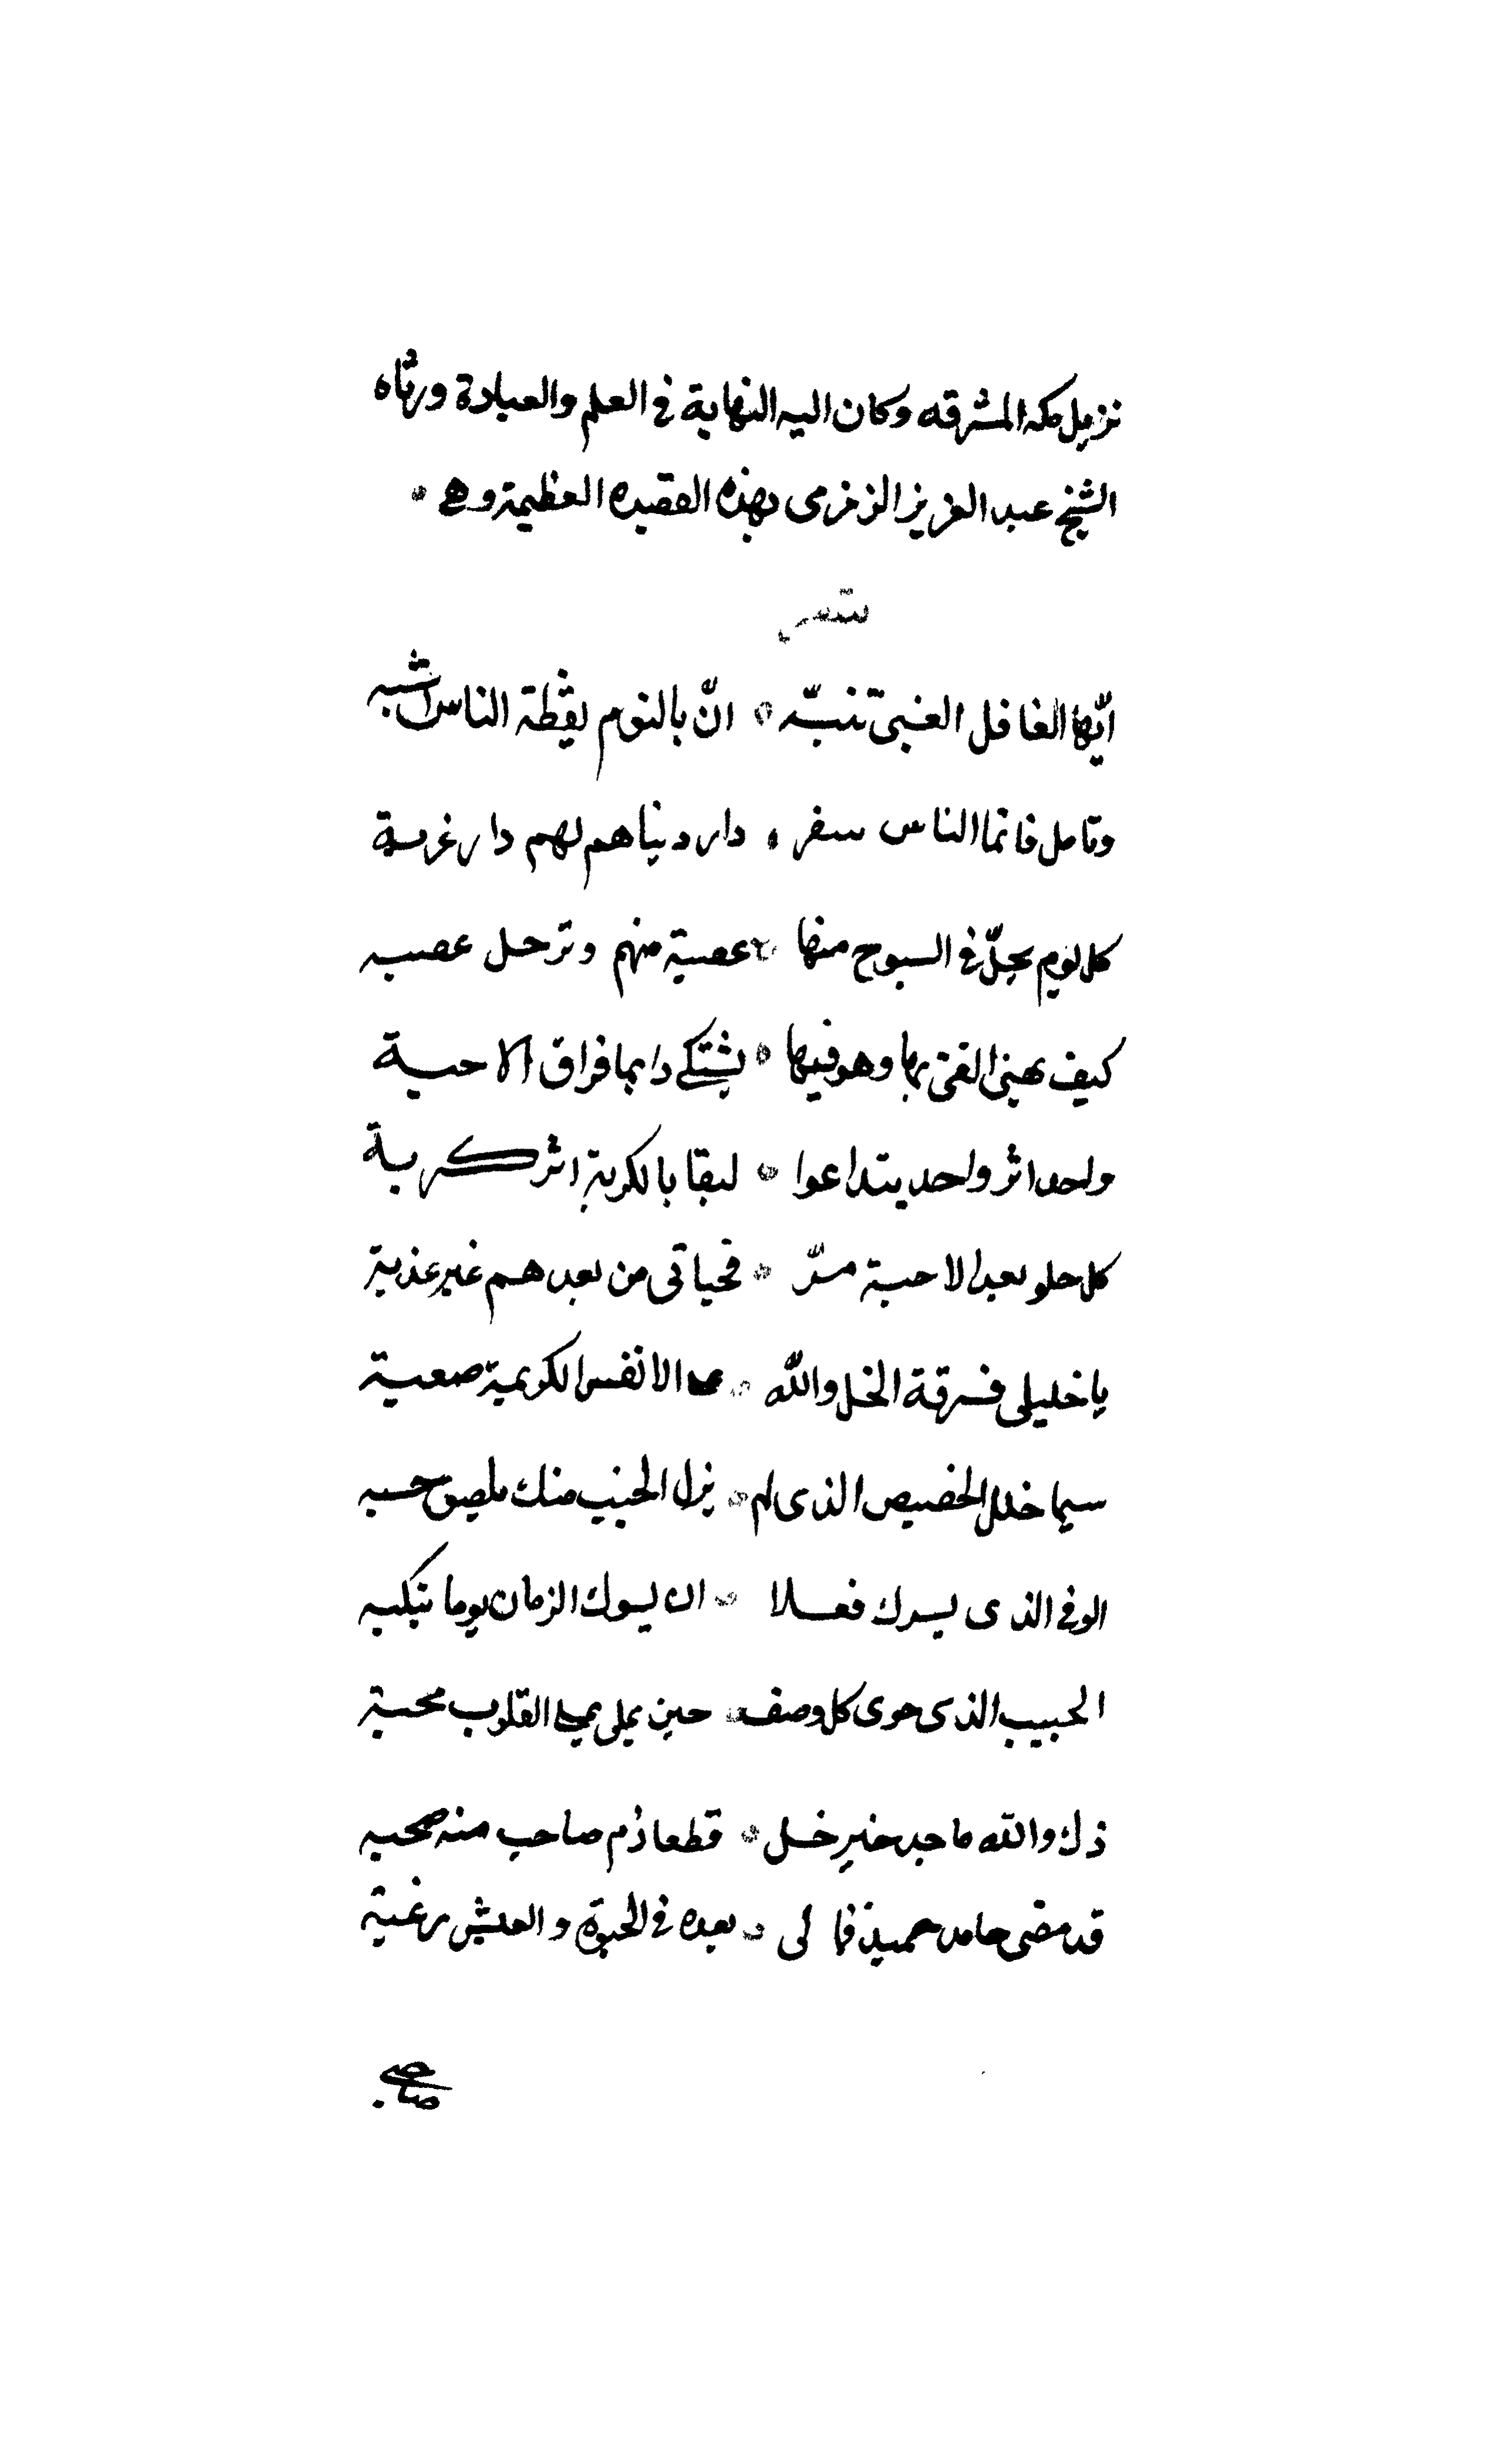 نزيل مكه المشرفه وكان اليه النهاية في العلم والعبادة ورثاه
الشيخ عبد العزيز الزمزمى بهذه القصيده العظيمة وهي
شعر
ايّها الغافل الغبىّ تنبّه * انّ بالنوم يقظة الناس اشبه
وتامل فانما الناس سفر * دار دنياهم لهم دار غربة
كل يوم يحلّ في السوح منها * عصبة منهم وترحل عصبه
كيف يهنى الفتى بها وهو فيها * يشتكي دايما فراق الاحبة
واحد اثر واحد يتداعوا * لبقا بالكربة اثر كربة
كل حلو بعد الاحبة مرّ * فحياتى من بعدهم غير عذبة
يا خليلى فرقة الخل والله * الانفس الكريمة صعبة
سيما خلك الخصيص الذى لم * يزل الجنب منك ملصوق جنبه
الوفي الذى يسرك فعلا * ان يسوك الزمان يوما بنكبه
الحبيب الذى حوى كل وصف * حين يملى يملي القلوب محبة
ذاك والله ماجد خير خل * قط ما ذم صاحب منه صحبه
قد مضى حامد حميدا فما لى * بعده في الحيوة والعيش رغبة
صاحبي